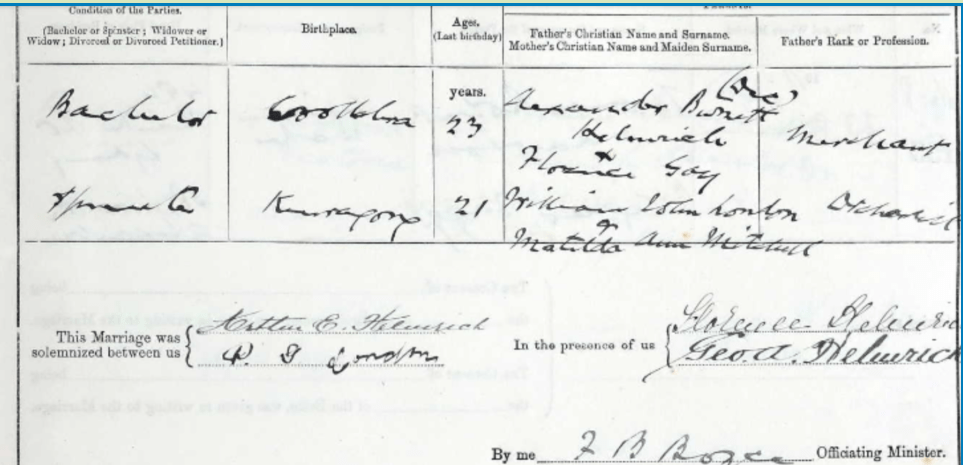 Condition of the Parties.
(Bachelor or Spinster; Widower or Widow; Divorced or Divorced Petitioner.)
Birthplace.
Ages.
(Last birthday)
Parents.
Father's Christian Name and Surname.
Mother's Christian Name and Maiden Surname.
Father's Rank or Profession.
years.
Bachelor 23 Alexander Burnett (Dec) Merchant
Helmrich
+
Florence Gay
Spinster Kurrajong 21 William John London Orchardist
+
Matilda Ann Mitchell
This Marriage was solemnized between us
Arthur E. Helmrich
London
In the presence of us
Florence Helmrich
Geo A. Helmrich
By me F B Boyce Officiating Minister.